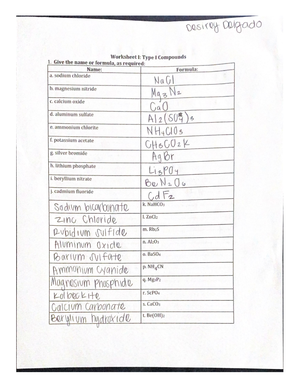 Desirey Delgado
Worksheet I: Type I Compounds
1. Give the name or formula, as required:
Name: Formula:
a. sodium chloride NaCl
b. magnesium nitride Mg3N2
c. calcium oxide CaO
d. aluminum sulfate Al2(SO4)3
e. ammonium chlorite NH4ClO3
f. potassium acetate CH3CO2K
g. silver bromide AgBr
h. lithium phosphate Li3PO4
i. beryllium nitrate BeN2O6
j. cadmium fluoride CdF2
Sodium bicarbonate k. NaHCO3
Zinc Chloride l. ZnCl2
Rubidium Sulfide m. Rb2S
Aluminum Oxide n. Al2O3
Barium Sulfate o. BaSO4
Ammonium Cyanide p. NH4CN
Magnesium Phosphide q. Mg3P2
Kolbeckite r. ScPO4
Calcium Carbonate s. CaCO3
Beryllium hydroxide t. Be(OH)2